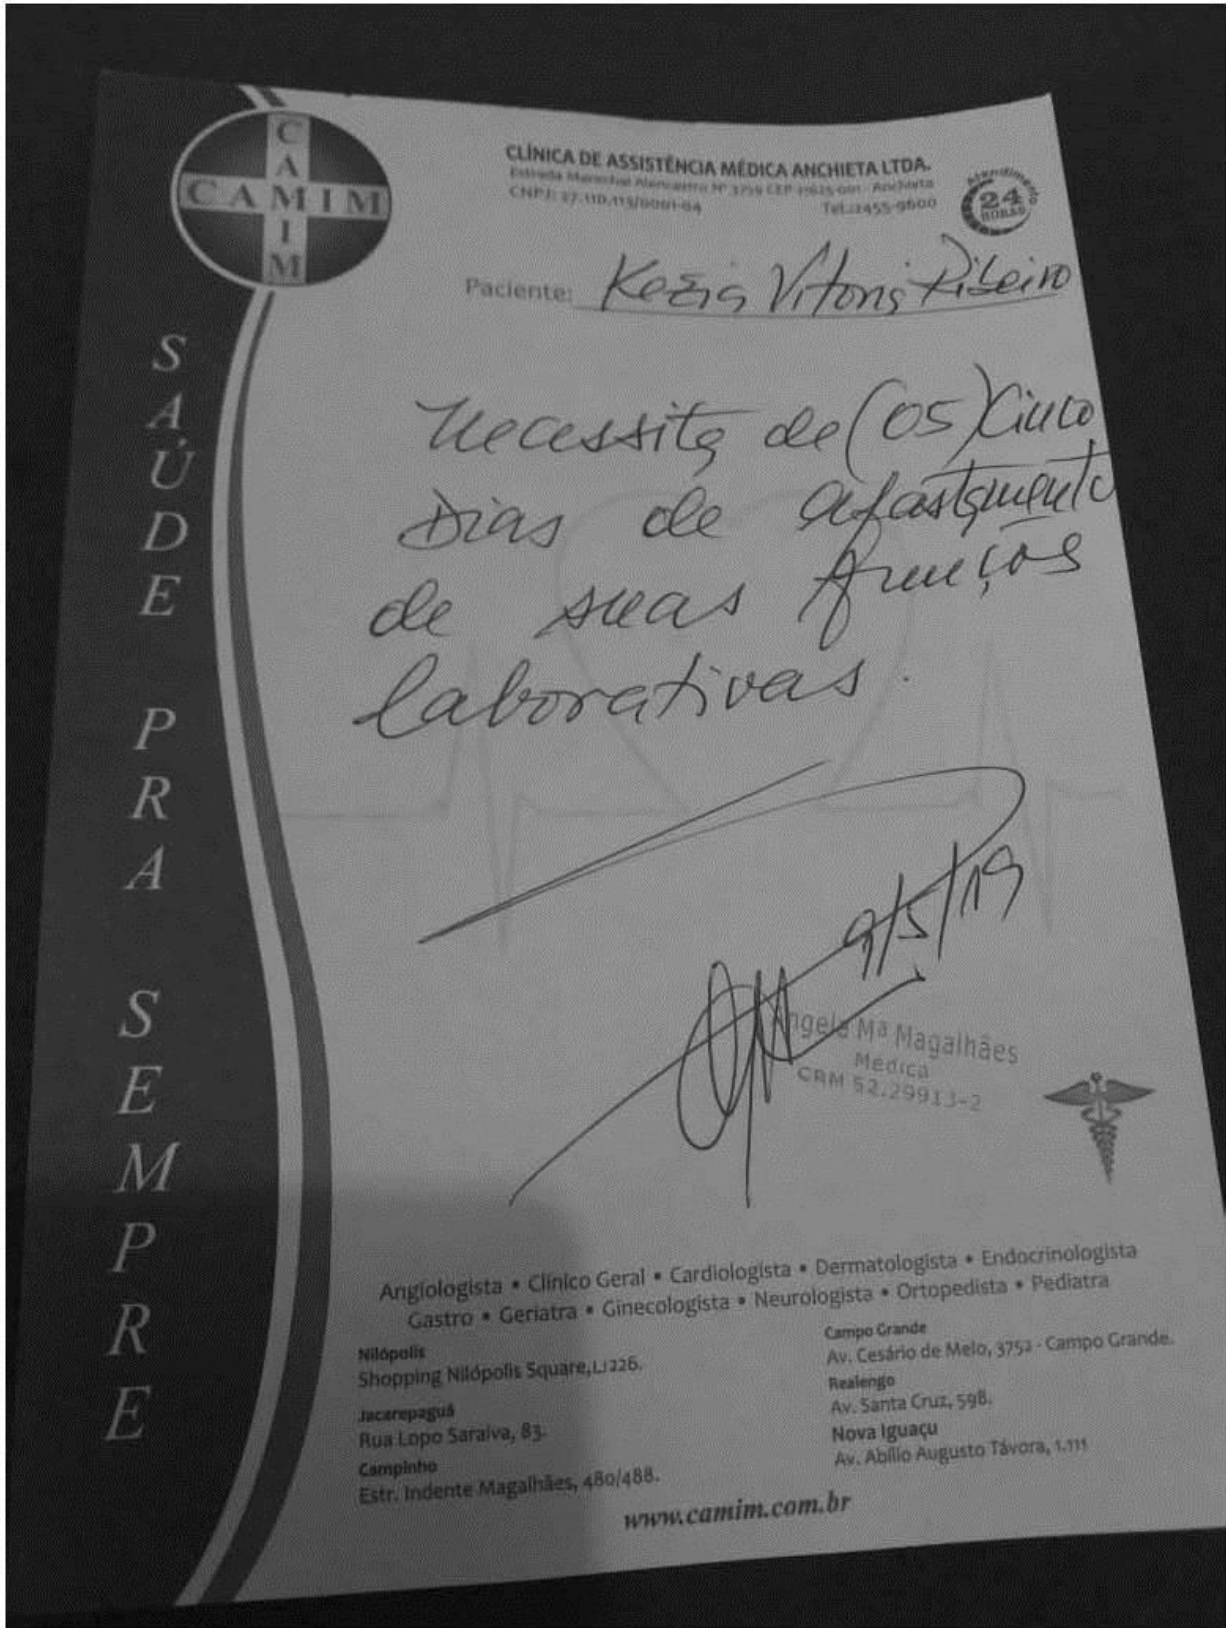 CAMIM
CAMIM
CLÍNICA DE ASSISTÊNCIA MÉDICA ANCHIETA LTDA.
Estrada Marechal Alencastro Nº 3759 CEP 21625-001 - Anchieta
CNPJ: 27.110.113/0001-04 Tel.:2455-9600
Atendimento
24
HORAS
Paciente: Kezia Vitoria Ribeiro
Necessita de (05) Cinco
Dias de afastamento
de suas funções
laborativas.
9/5/19
Angela Mª Magalhães
Médica
CRM 52.29913-2
SAÚDE PRA SEMPRE
Angiologista • Clínico Geral • Cardiologista • Dermatologista • Endocrinologista
Gastro • Geriatra • Ginecologista • Neurologista • Ortopedista • Pediatra
Nilópolis
Shopping Nilópolis Square, LJ 226.
Jacarepaguá
Rua Lopo Saraiva, 83.
Campinho
Estr. Indente Magalhães, 480/488.
Campo Grande
Av. Cesário de Melo, 3752 - Campo Grande.
Realengo
Av. Santa Cruz, 598.
Nova Iguaçu
Av. Abílio Augusto Távora, 1.111
www.camim.com.br